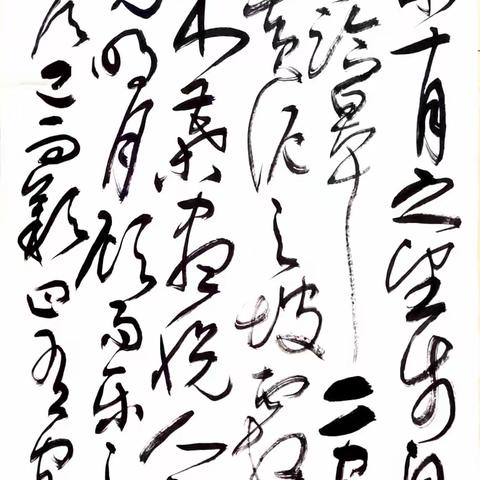 十月之望步自
臨皋二客
黄泥之坡霜
木葉盡脱人
明月顧而樂之
已而歎曰有客